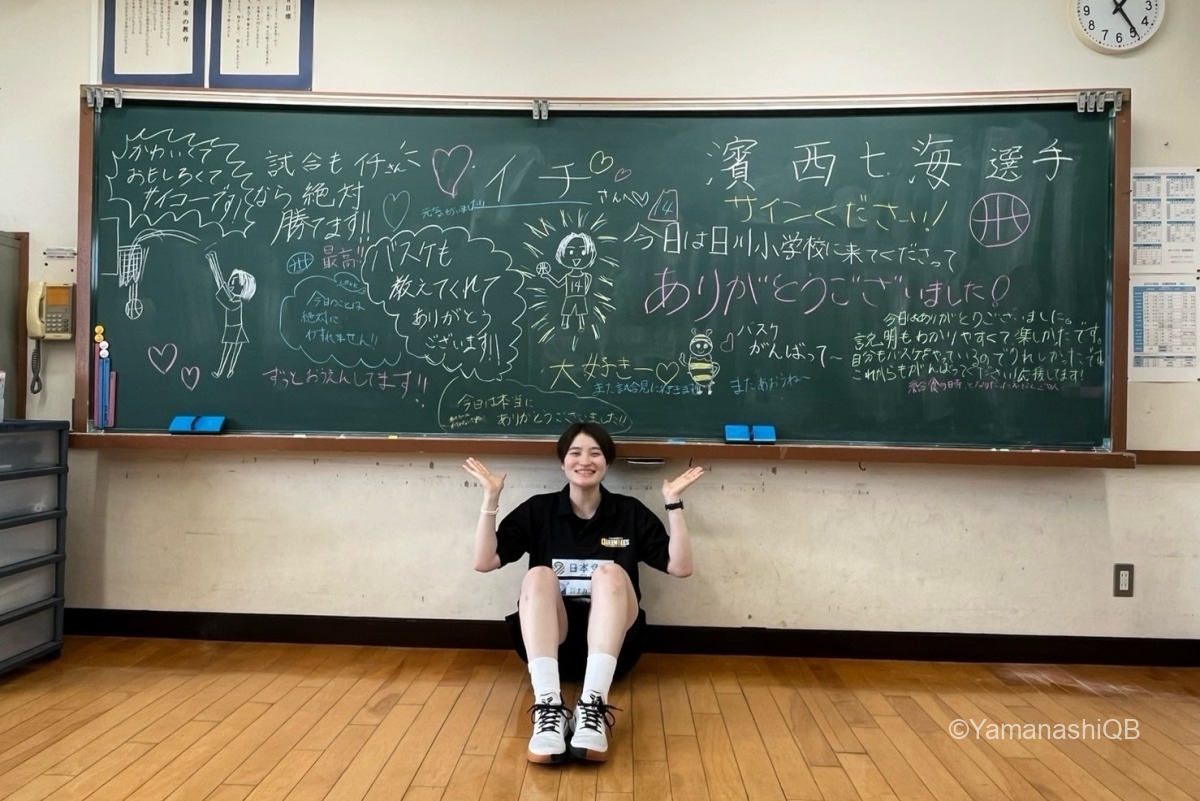 かわいくて
おもしろくて
サイコーです!!
試合もイチさん
なら絶対
勝てます!!
イチ
さんへ
14
濱西七海選手
サインください!
今日は日川小学校に来てくださって
ありがとうございました!
最高!!
今日のことは
絶対に
忘れません!!
バスケも
教えてくれて
ありがとう
ございます!!
14
大好きー
ずっとおうえんしてます!!
今日は本当に
ありがとうございました!!
バスケ
がんばって〜
またあおうね〜
今日はありがとうございました。
説明もわかりやすくて楽しかったです。
自分もバスケをやっているのでうれしかったです
これからもがんばってください!応援してます!
QUEENBEES
©YamanashiQB